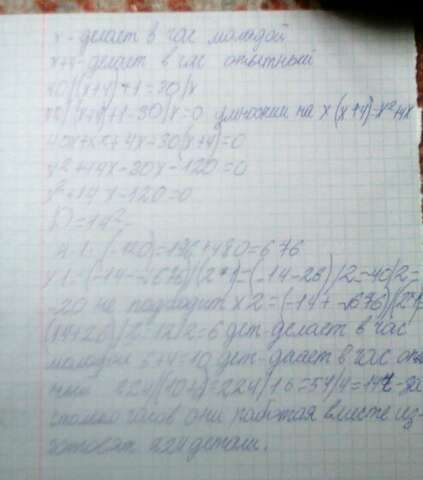 x - делает в час молодой
x+4 - делает в час опытный
40/(x+4)+1=30/x
40/(x+4)+1-30/x=0 умножим на x(x+4)=x²+4x
40x+x²+4x-30(x+4)=0
x²+44x-30x-120=0
x²+14x-120=0
D=14²-
4·1·(-120)=196+480=676
x1=(-14-√676)/(2*1)=(-14-26)/2=-40/2=
-20 не подходит x2=(-14+√676)/(2*1)=
(-14+26)/2=12/2=6 дет-делает в час
молодой 6+4=10 дет-делает в час опыт
ный 224/(10+6)=224/16=54/4=14ч-за
столько часов они работая вместе из-
готовят 224 детали.